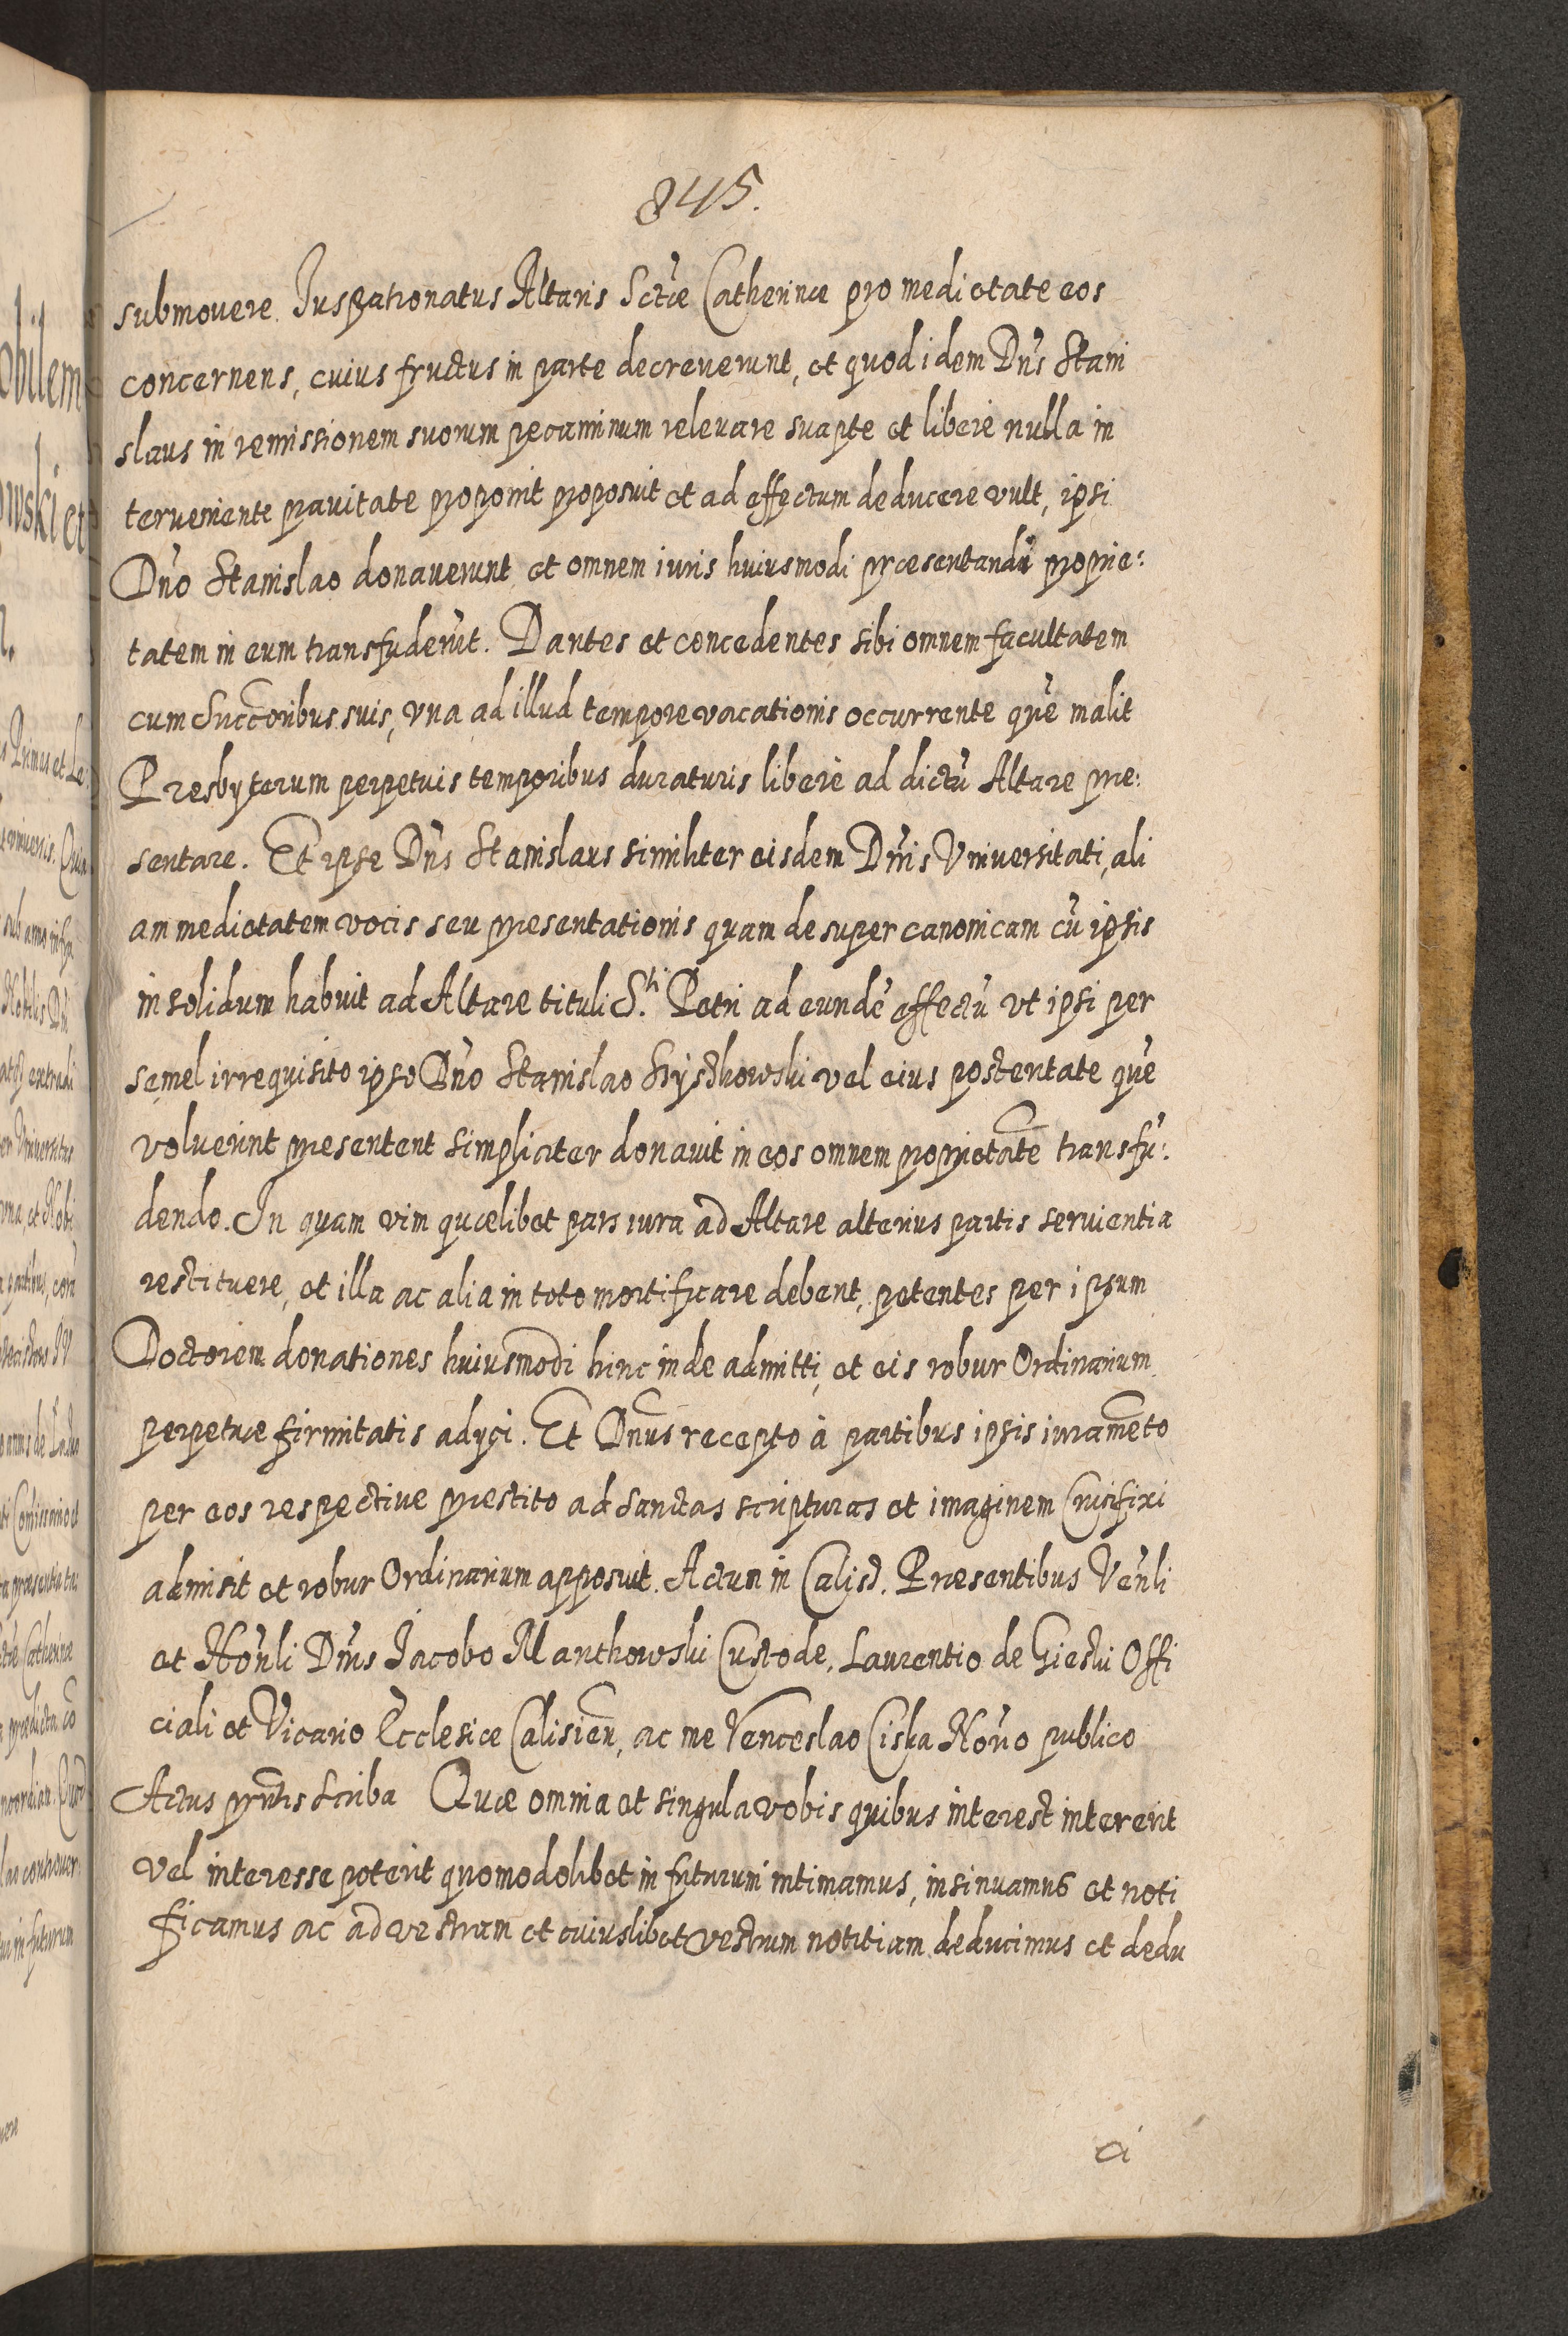 845.
submovere. Juspatronatus Altaris Sctæ Catherinæ pro medietate eos
concernens, cuius fructus in parte decreverunt, et quod idem Dns Stani
slaus in remissionem suorum peccaminum relevare suapte et libere nulla in
terveniente pravitate proponit proposuit et ad effectum deducere vult, ipsi
Dno Stanislao donaverunt et omnem iuris huiusmodi præsentandi proprie:
tatem in eum transfuderunt. Dantes et concedentes sibi omnem facultatem
cum Succoribus suis, vna ad illud tempore vacationis occurrente que malit
Presbyterum perpetuis temporibus duraturis libere ad dictu Altare pre:
sentare. Et ipse Dns Stanislaus similiter eisdem Dnis Vniversitati, ali
am medietatem vocis seu presentationis quam desuper canonicam cu ipsis
in solidum habuit ad Altare tituli S.ti Petri ad eunde effectu vt ipsi per
semel irrequisito ipso Dno Stanislao vel eius posteritate que
voluerint presentent simpliciter donavit in eos omnem proprietate transfu:
dendo. In quam vim quælibet pars iura ad Altare alterius partis servientia
restituere, et illa ac alia in toto mortificare debent, petentes per ipsum
Doctorem donationes huiusmodi hinc inde admitti, et eis robur Ordinarium
perpetuæ firmitatis adyci. Et Dnus recepto à partibus ipsis iurameto
per eos respective prestito ad Sanctas scripturas et imaginem Crucifixi
admisit et robur Ordinarium apposuit. Actum in Calis. Præsentibus Venli
et Honli Dnis Jacobo Manthowski Custode, Laurentio de Offi
ciali et Vicario Ecclesiæ Calisien, ac me Venceslao Ciska Norio publico
Actus pntis Scriba Quæ omnia et singula vobis quibus interest intererit
vel interesse poterit quomodolibet in futurum intimamus, insinuamus et noti
ficamus ac ad vestram et cuiuslibet vestrum notitiam deducimus et dedu
ci